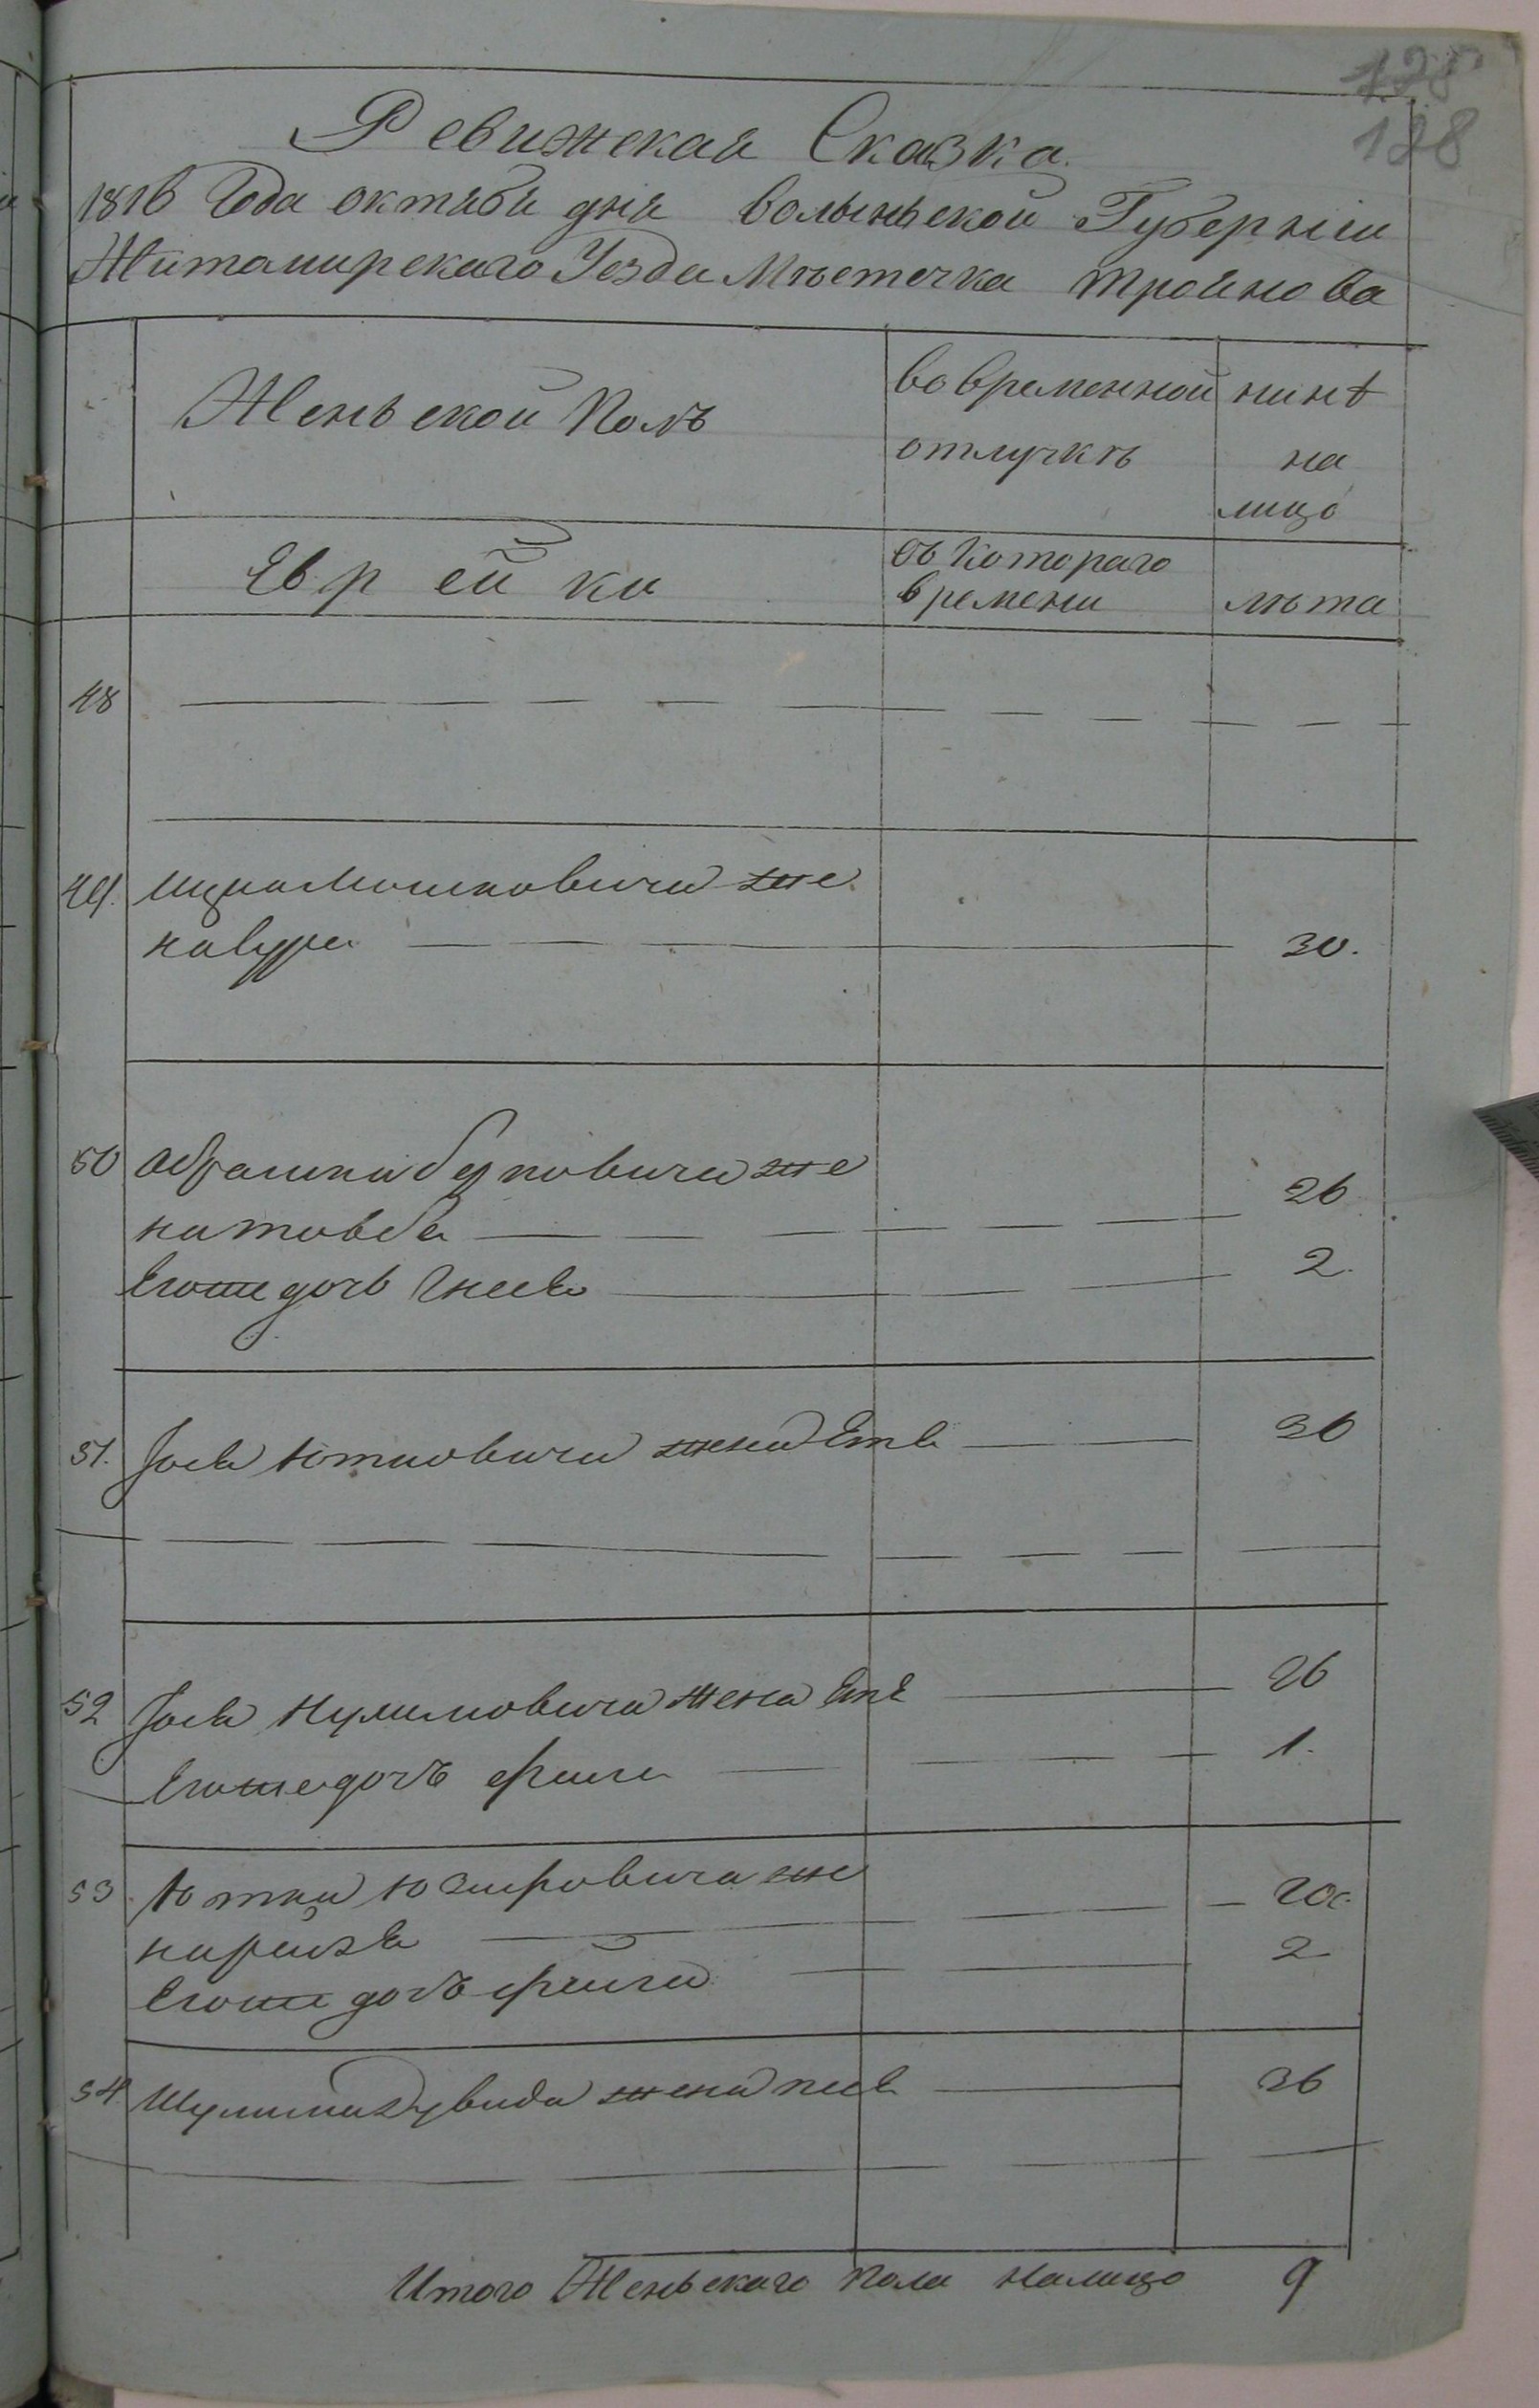 128
128
Ревижская Сказка.
1816 Года октября дня Волыньской Губернiи
Житомирскаго Уезда Мѣстечка Троянова
Женьской Полъ
во временной
отлучкѣ
нинѣ
на
лицо
Еврейки
съ Котораго
времени
лѣта
48
49. Мошковича же
на 30.
50 Абрамка Берковича же
на товба 26
Егоже дочь Гнеся 2.
51. Iося Ютковича жена Етя 36
52 Iося Шулимовича Жена Етя 26
Егоже дочъ фейга 1.
53 Ютки Юзифовича же
на рейзя 20.
Егоже дочъ фейга 2
54 Шулима Дувида жена песя 36
Итого Женьскаго Пола Налицо 9